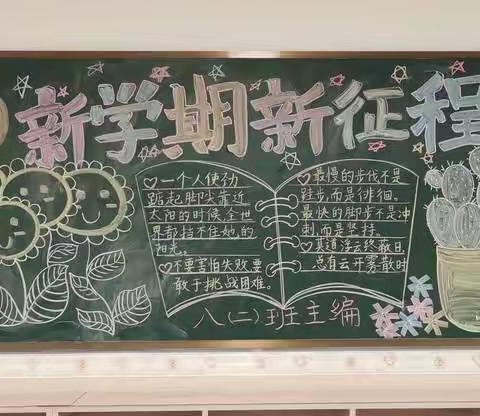 新学期新征程
♡一个人使劲
踮起脚尖靠近
太阳的时候,全世
界都挡不住她的
阳光。
♡不要害怕失败,要
敢于挑战困难。
♡最慢的步伐不是
跬步,而是徘徊。
最快的脚步不是冲
刺,而是坚持。
♡莫道浮云终蔽日,
总有云开雾散时
八(二)班主编